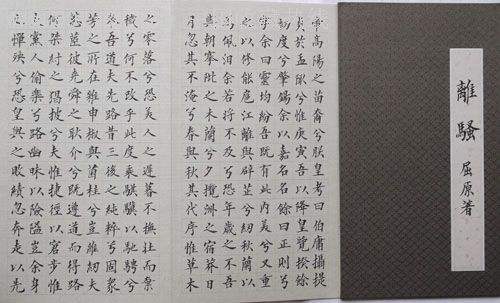 離騷 屈原著
帝高陽之苗裔兮朕皇考曰伯庸攝提
貞於孟陬兮惟庚寅吾以降皇覽揆余
初度兮肇錫余以嘉名名余曰正則兮
字余曰靈均紛吾既有此內美兮又重
之以修能扈江離與辟芷兮紉秋蘭以
為佩汩余若將不及兮恐年歲之不吾
與朝搴阰之木蘭兮夕攬洲之宿莽日
月忽其不淹兮春與秋其代序惟草木
之零落兮恐美人之遲暮不撫壯而棄
穢兮何不改乎此度乘騏驥以馳騁兮
來吾道夫先路昔三後之純粹兮固衆
芳之所在雜申椒與菌桂兮豈維紉夫
蕙茞彼堯舜之耿介兮既遵道而得路
何桀紂之猖披兮夫惟捷徑以窘步惟
夫黨人偷樂兮路幽昧以險隘豈余身
之憚殃兮恐皇輿之敗績忽奔走以先